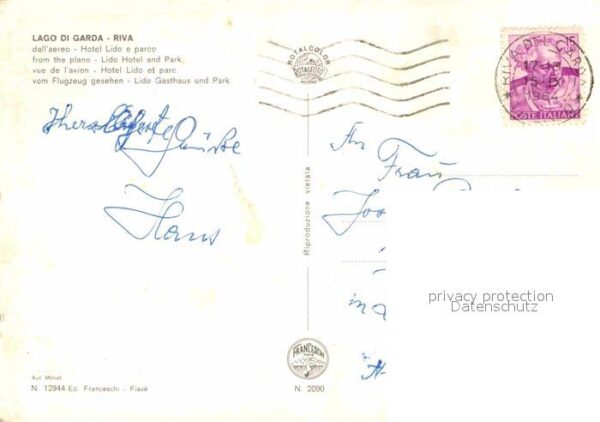 LAGO DI GARDA - RIVA
dall'aereo - Hotel Lido e parco
from the plane - Lido Hotel and Park,
vue de l'avion - Hotel Lido et parc
vom Flugzeug gesehen - Lido Gasthaus und Park
ROTALCOLOR
ROTALFOTO
MILANO
15
RIVA DEL GARDA
POSTE ITALIANE
Herzlichste Grüsse
Hans
An
Frau
in
Riproduzione vietata
privacy protection
Datenschutz
FRANCESCHI
Aut. Minist.
N. 12944 Ed. Franceschi - Fiavè
N. 2090